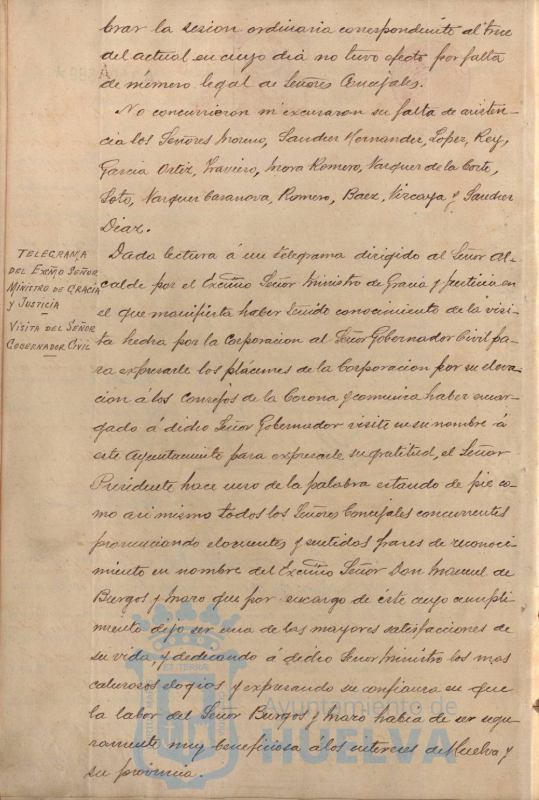 brar la sesion ordinaria correspondiente al trece
del actual en cuyo dia no tuvo efecto por falta
de número legal de Señores Concejales.
No concurrieron ni excusaron su falta de asisten-
cia los Señores Moreno, Sanchez Hernandez, Lopez, Rey,
Garcia Ortiz, Traviero, Mora Romero, Vazquez de la Corte,
Soto, Vazquez Casanova, Romero, Baez, Vizcaya y Sanchez
Diaz.
TELEGRAMA
DEL EXCMO SEÑOR
MINISTRO DE GRACIA
Y JUSTICIA
VISITA DEL SEÑOR
GOBERNADOR CIVIL
Dada lectura á un telegrama dirigido al Señor Al-
calde por el Excmo Señor Ministro de Gracia y Justicia en
el que manifiesta haber tenido conocimiento de la visi-
ta hecha por la Corporacion al Señor Gobernador Civil pa-
ra expresarle los plácemes de la Corporacion por su eleva-
cion á los Consejos de la Corona y comunica haber encar-
gado á dicho Señor Gobernador visite en su nombre á
este Ayuntamiento para expresarle su gratitud, el Señor
Presidente hace uso de la palabra estando de pie co-
mo asi mismo todos los Señores Concejales concurrentes
pronunciando elocuentes y sentidas frases de reconoci-
miento en nombre del Excmo Señor Don Manuel de
Burgos y Mazo que por encargo de éste cuyo cumpli-
miento dijo ser una de las mayores satisfacciones de
su vida, y dedicando á dicho Señor Ministro los mas
calurosos elogios y expresando su confianza en que
la labor del Señor Burgos y Mazo habia de ser segu-
ramente muy beneficiosa á los intereses de Huelva y
su provincia.
Ayuntamiento de
HUELVA